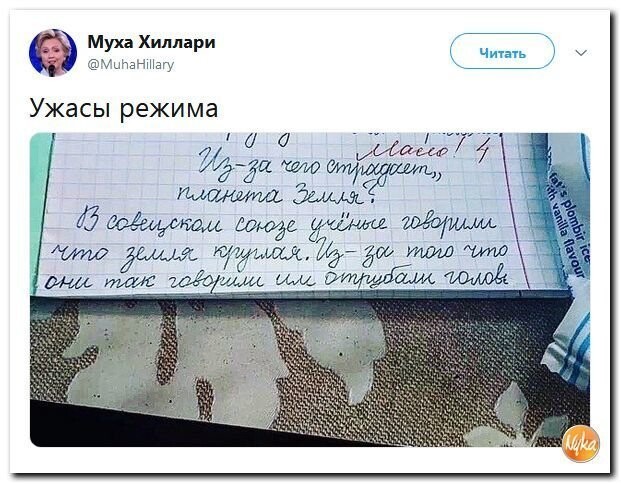 Муха Хиллари
@MuhaHillary
Читать
Ужасы режима
Мало! 4
Из-за чего страдает,,
планета Земля?
В совецском союзе учёные говорили
что земля круглая. Из-за того что
они так говорили им отрубали головы
fat's plombir ice
with vanilla flavour